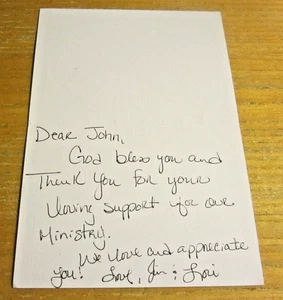 Dear John,
God bless you and
Thank You for your
loving support for our
Ministry.
We love and appreciate
you! Love, Jim & Lori